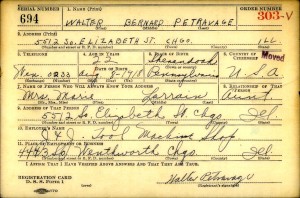 SERIAL NUMBER 1. NAME (Print) ORDER NUMBER
WALTER BERNARD PETRAVAGE 303-V
2. ADDRESS (Print)
5512 So. ELIZABETH ST. CHGO. ILL
3. TELEPHONE 4. AGE IN YEARS 5. PLACE OF BIRTH 6. COUNTRY OF CITIZENSHIP
Moved
22 Shenandoah
Wen. 0233 Aug 8-1918 Pennsylvania U.S.A
7. NAME OF PERSON WHO WILL ALWAYS KNOW YOUR ADDRESS 8. RELATIONSHIP OF THAT PERSON
Mrs. Marie Aunt
9. ADDRESS OF THAT PERSON
5512 So. Elizabeth St. Chgo. Ill.
10. EMPLOYER'S NAME
Tool Machine Shop
11. PLACE OF EMPLOYMENT OR BUSINESS
4443 So. Wentworth Chgo. Ill.
I AFFIRM THAT I HAVE VERIFIED ABOVE ANSWERS AND THAT THEY ARE TRUE.
REGISTRATION CARD
D. S. S. FORM 1
Walter Petravage